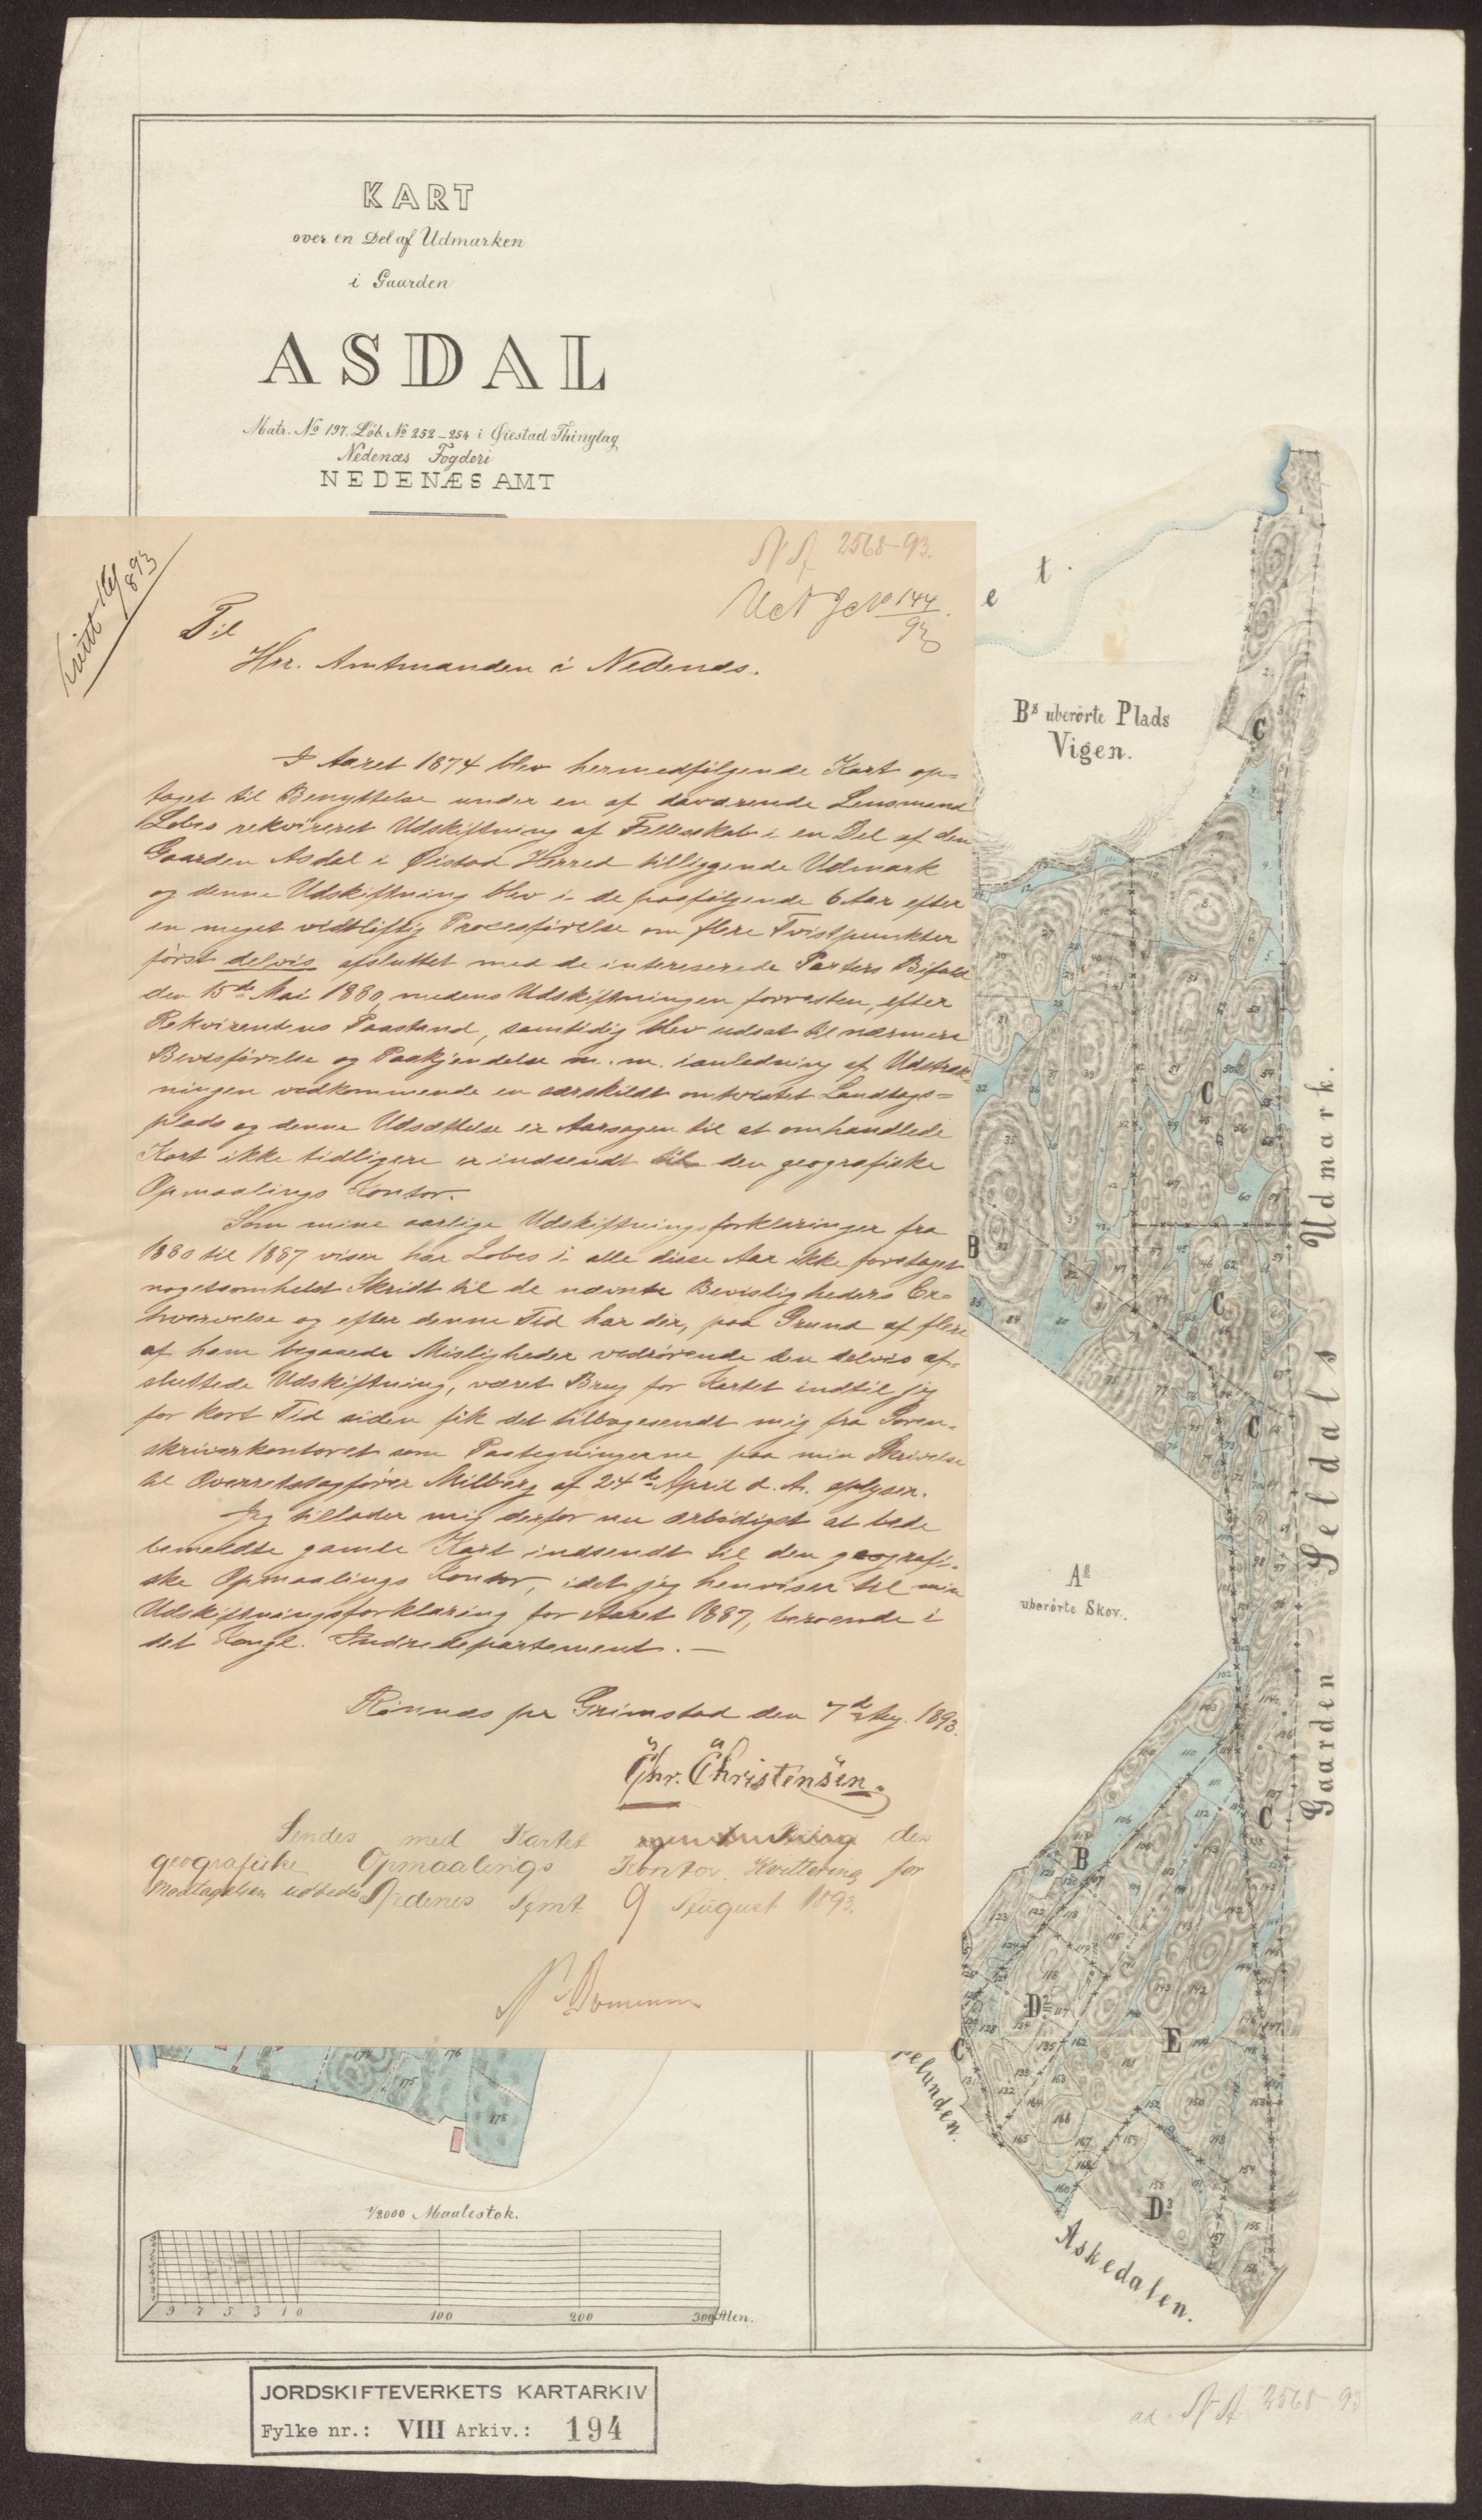 KART
over en Del af Udmarken
i Gaarden
ASDAL
Matr. No 197. Löb. No 252-254 i Öiestad Thinglag
Nedenæs Fogderi
NEDENÆS AMT
2568-93.
144
93
Til
Hrr. Amtmanden i Nedenæs.
I Aaret 1874 blev hermedfølgende Kart op=
taget til Benyttelse under en af daværende Lensmand
Løbes rekvireret Udskiftning af Fellesskab i en Del af den
Gaarden Asdal i Øistad Herred tilliggende Udmark
og denne Udskiftning blev i de paafølgende 6 Aar efter
en meget vidtløftig Procesførelse om flere Tvistpunkter
først delvis afsluttet med de interesserede Parters Bifald
den 15de Mai 1880, medens Udskiftningen forresten, efter
Rekvirentens Paastand, samtidig blev udsat til nærmere
Bevisførelse og Paakjendelse m. m. i anledning af Udstræk
ningen vedkommende en særskildt omtvistet Landtags=
plads og denne Udsættelse er Aarsagen til at omhandlede
Kart ikke tidligere er indsendt til den geografiske
Opmaalings Kontor.
Som mine aarlige Udskiftningsforklaringer fra
1880 til 1887 viser har Løbes i alle disse Aar ikke foretaget
nogetsomhelst Skridt til de nævnte Bevisligheders Er=
hvervelse og efter denne Tid har der, paa Grund af flere
af ham begaaede Misligheder vedrørende den delvis af=
sluttede Udskiftning, været Brug for Kartet indtil jeg
for kort Tid siden fik det tilbagesendt mig fra Soren=
skriverkontoret som Paategningerne paa min Skrivelse
til Overretssagfører Milberg af 24de April d. A. oplyser.
Jeg tillader mig derfor nu ærbødigst at bede
bemeldte gamle Kart indsendt til den geografi=
ske Opmaalings Kontor, idet jeg henviser til min
Udskiftningsforklaring for Aaret 1887, beroende i
det Kongl. Indredepartement. —
Rønnes pr Grimstad den 7de Aug. 1893.
Chr. Christensen.
Sendes med Kartet den
geografiske Opmaalings Kontor. Kvittering for
Modtagelsen udbedes Nedenes Amt 9 August 1893.
e t.
Bs uberörte Plads
Vigen.
C
C
B
C
C
As
uberörte Skov.
Gaarden Seldals Udmark.
C
B
D2
E
C
pelunden.
D3
Askedalen.
174
176
175
178
1/2000 Maalestok.
9 7 5 3 1 0 100 200 300 Alen.
JORDSKIFTEVERKETS KARTARKIV
Fylke nr.: VIII Arkiv.: 194
ad. 2568-93